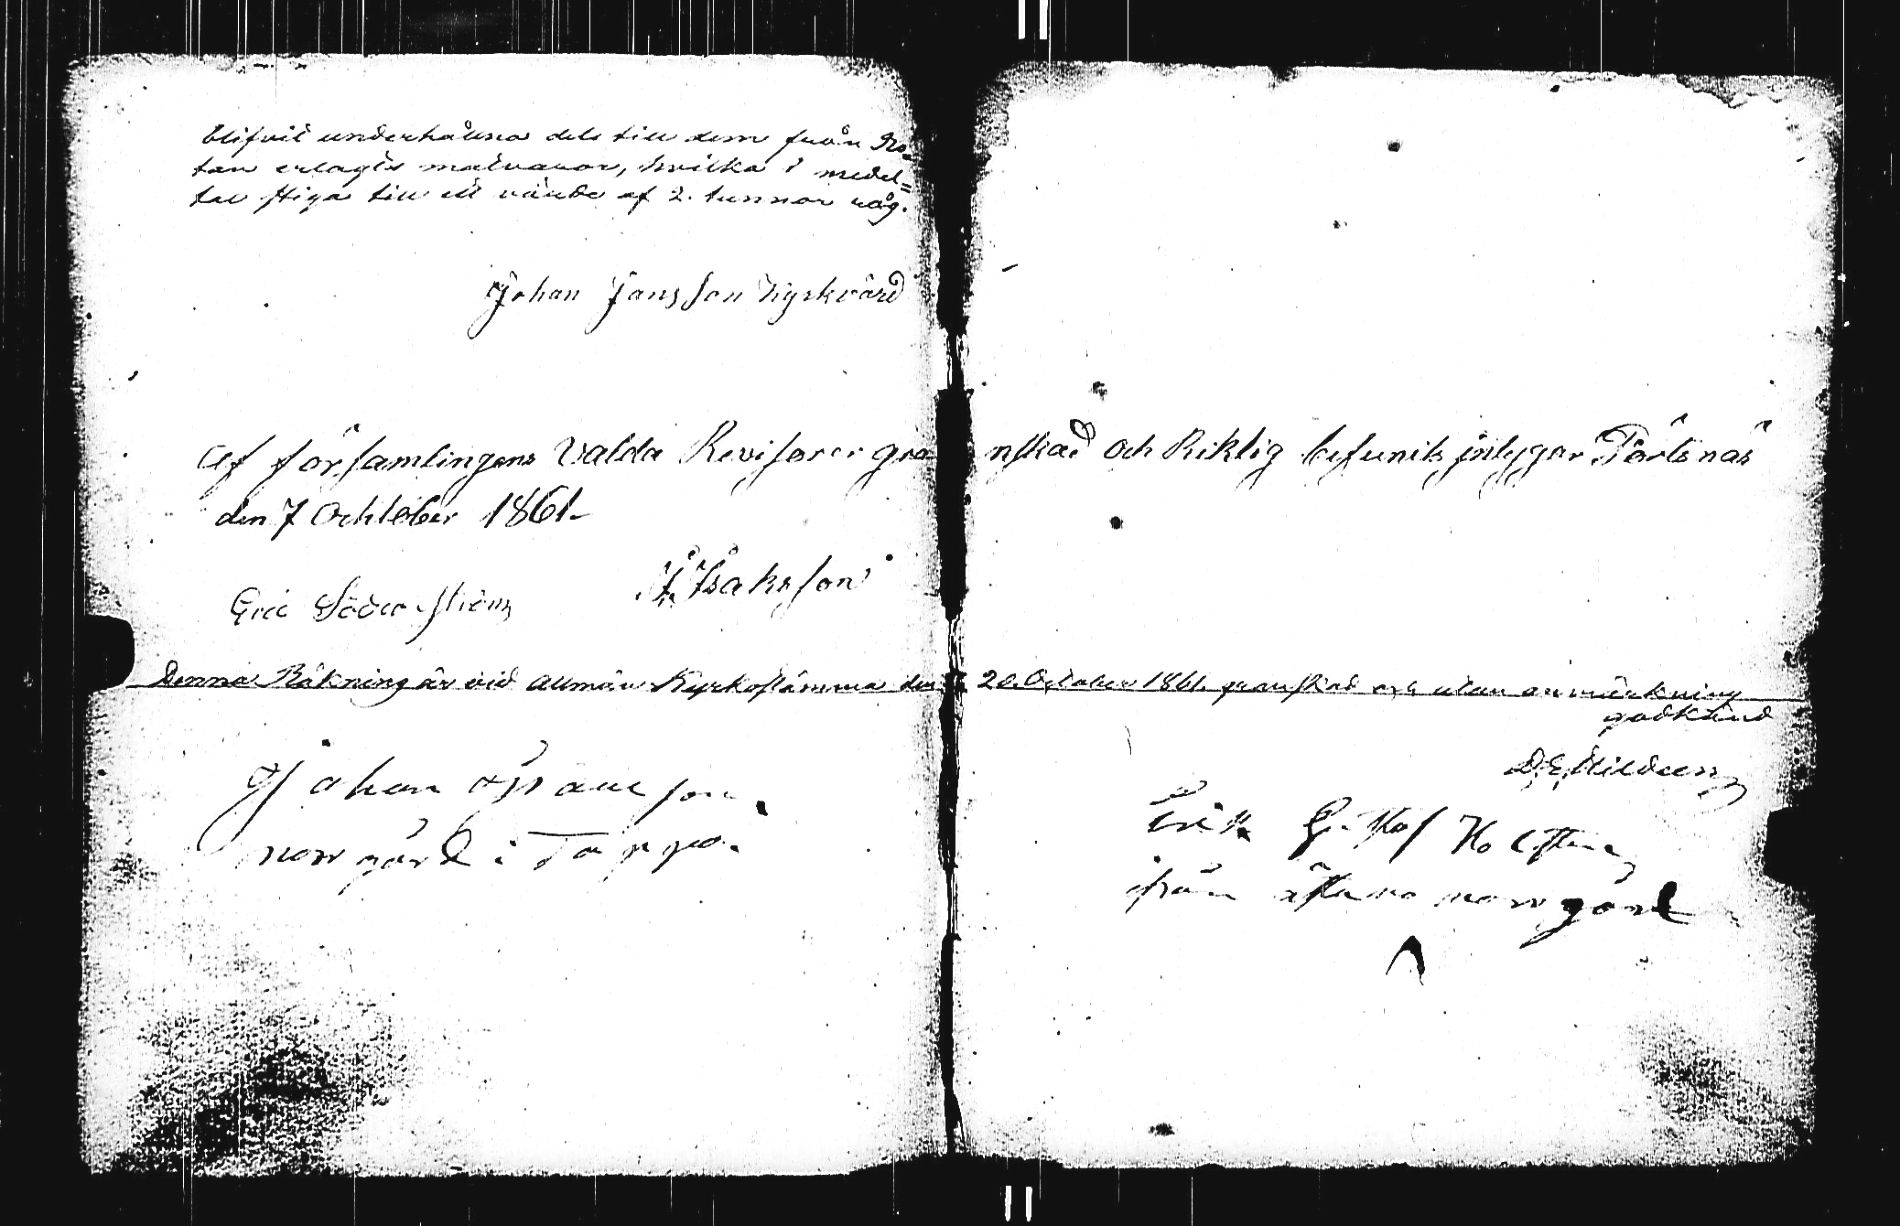 blifvit underhållna dels till dem från Ro=
tan erlagts matvaror, hvilka i medel=
tal stiga till ett värde af 2. tunnor råg.
Johan Jansson Kyrkvärd
Af församlingens Valda Revisorer granskad och Riktig befunits intygar Törtsnäs
den 7 Ochtober 1861.
Eric Söderström Isaksson
Denna Räkning är vid allmän Kyrkostämma den 20. October 1861. granskad och utan anmärkning
godkänd
D. E.
Johan
norrgård i
Erik Gustaf
ifrån norrgård